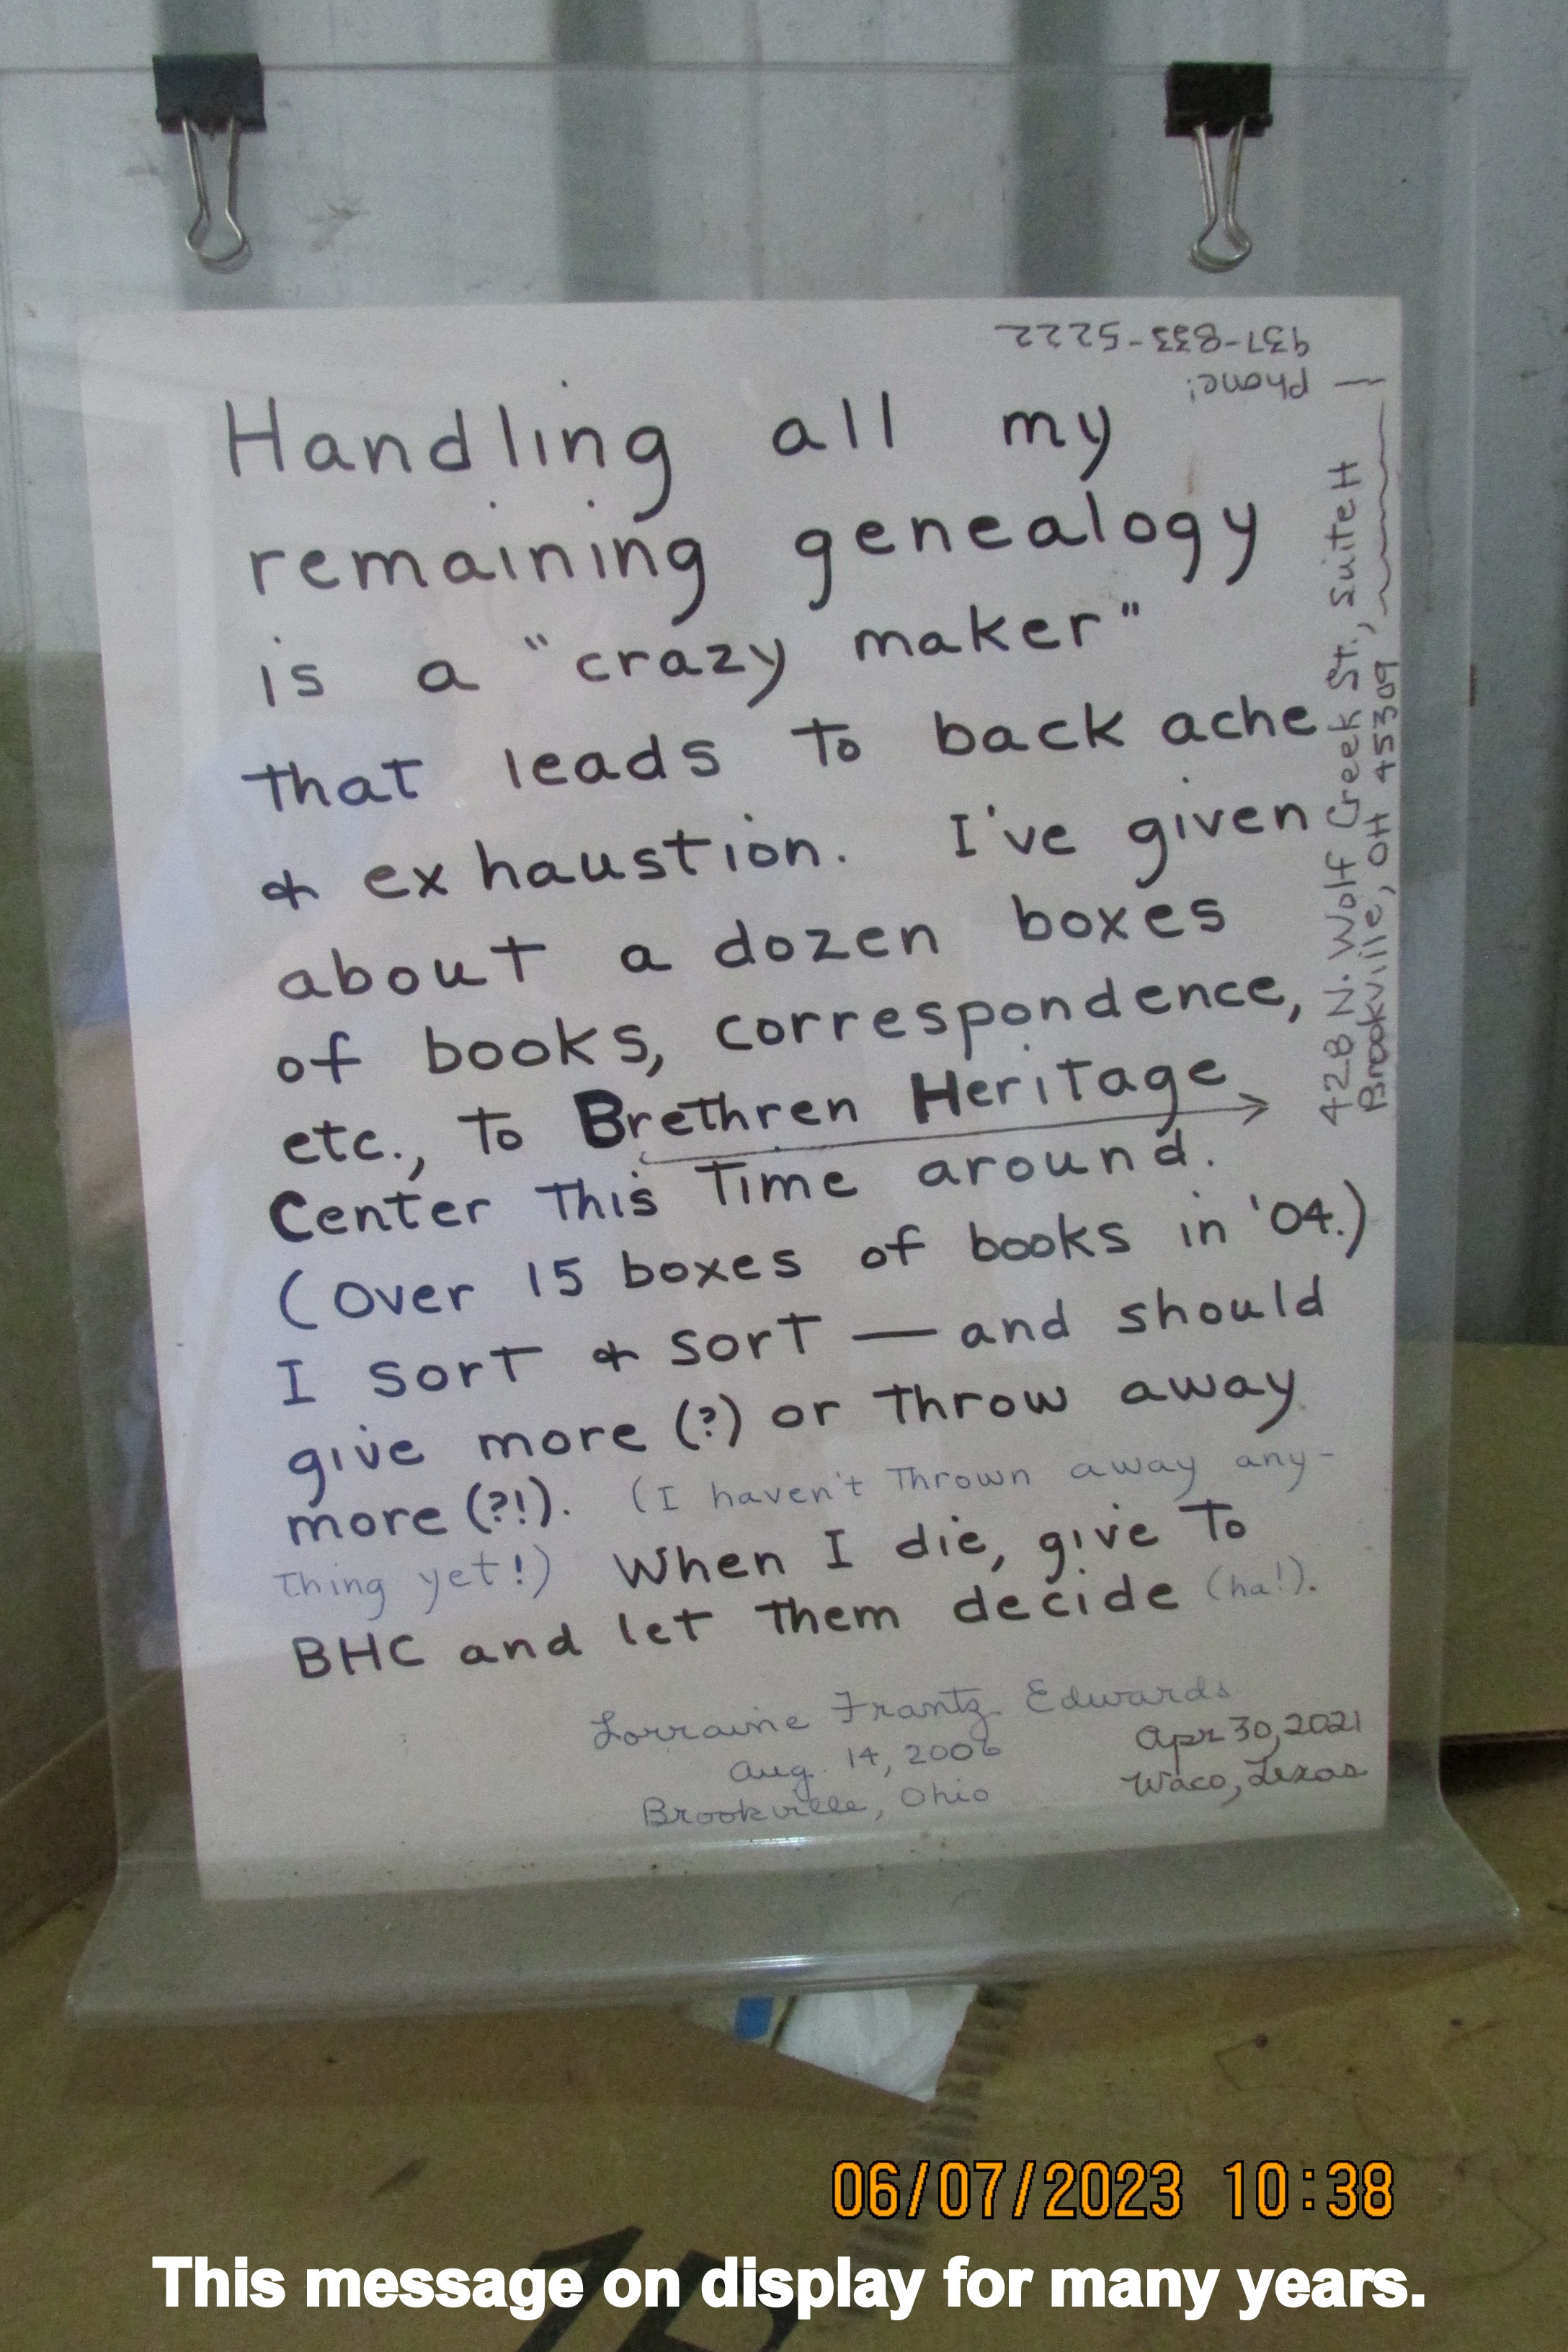 Handling all my
remaining genealogy
is a "crazy maker"
that leads to back ache
& exhaustion. I've given
about a dozen boxes
of books, correspondence,
etc., to Brethren Heritage
Center this time around.
(Over 15 boxes of books in '04.)
I sort & sort — and should
give more (?) or throw away
more (?!). (I haven't thrown away any-
thing yet!) When I die, give to
BHC and let them decide (ha!).
Lorraine Frantz Edwards
Aug. 14, 2006
Brookville, Ohio
Apr 30, 2021
Waco, Texas
428 N. Wolf Creek St., Suite H
Brookville, OH 45309
Phone:
937-833-5222
06/07/2023 10:38
This message on display for many years.